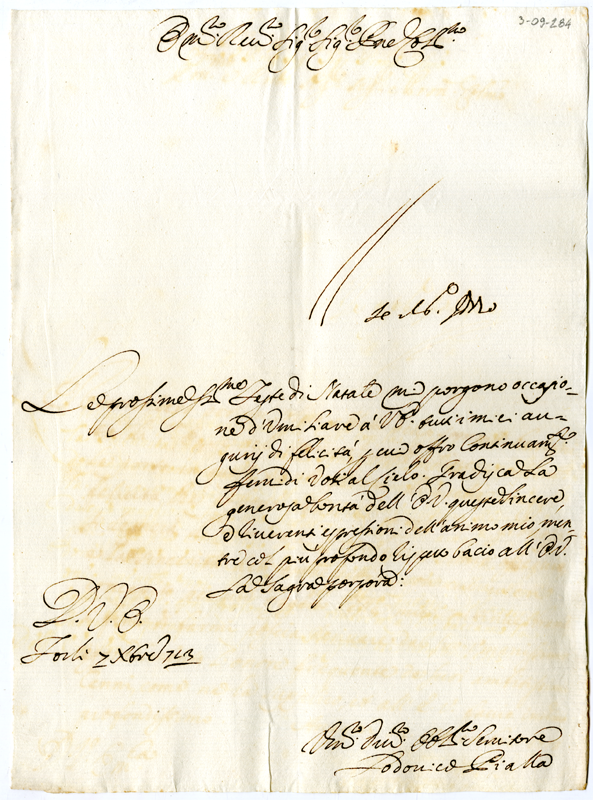 3-09-284
Em.mo Rev.mo Sig.r Sig.r
Le prossime S.me Feste di Natale mi porgono occasio=
ne d'umiliare à V. E. tutti i miei au=
gurij di felicità, per cui offro continuam.te
fervidi voti al Cielo. Gradisca La
generosa bontà dell' E. V. queste sincere
e riverenti espressioni dell'animo mio, men=
tre col più profondo rispetto bacio all' E. V.
La Sagra porpora:
D. V. E.
Forlì 7 Xbre 713
Um.mo Dev.mo Obb.mo Servitore
Lodovico